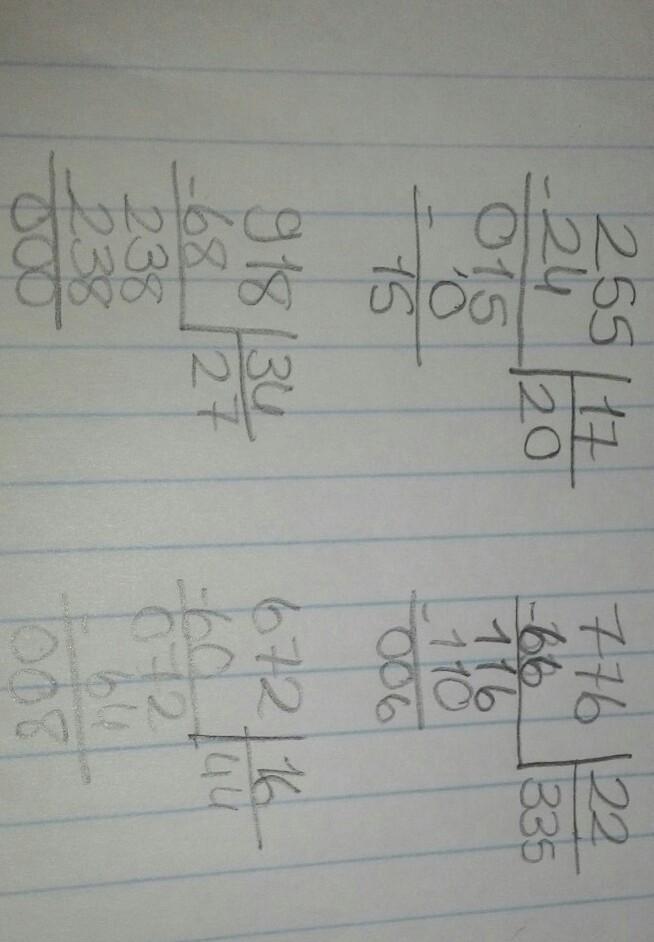 255 17
-24 20
015
- 0
15
776 22
-66 335
116
-110
006
918 34
-68 27
238
-238
000
672 16
-60 44
072
- 64
008